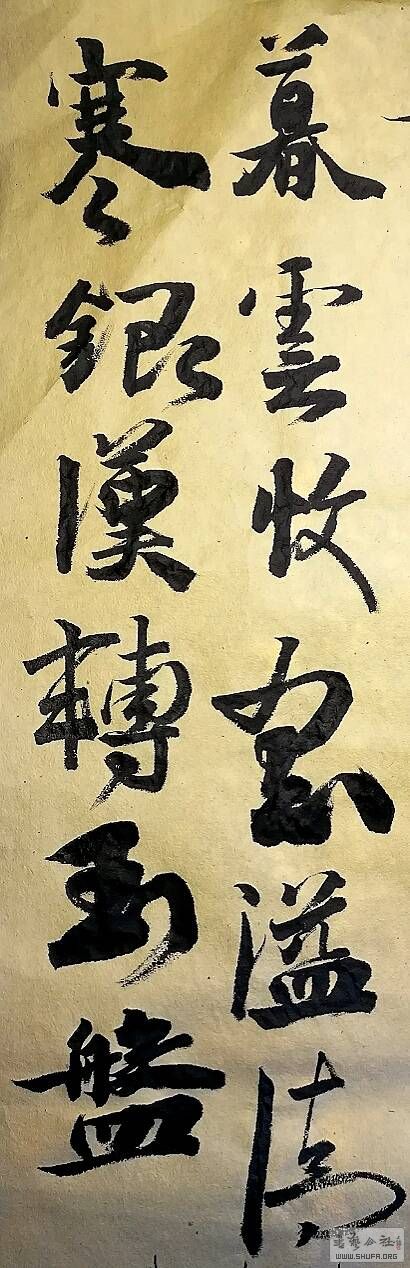 暮雲收盡溢清
寒銀漢轉玉盤
書藝公社
WWW.SHUFA.ORG